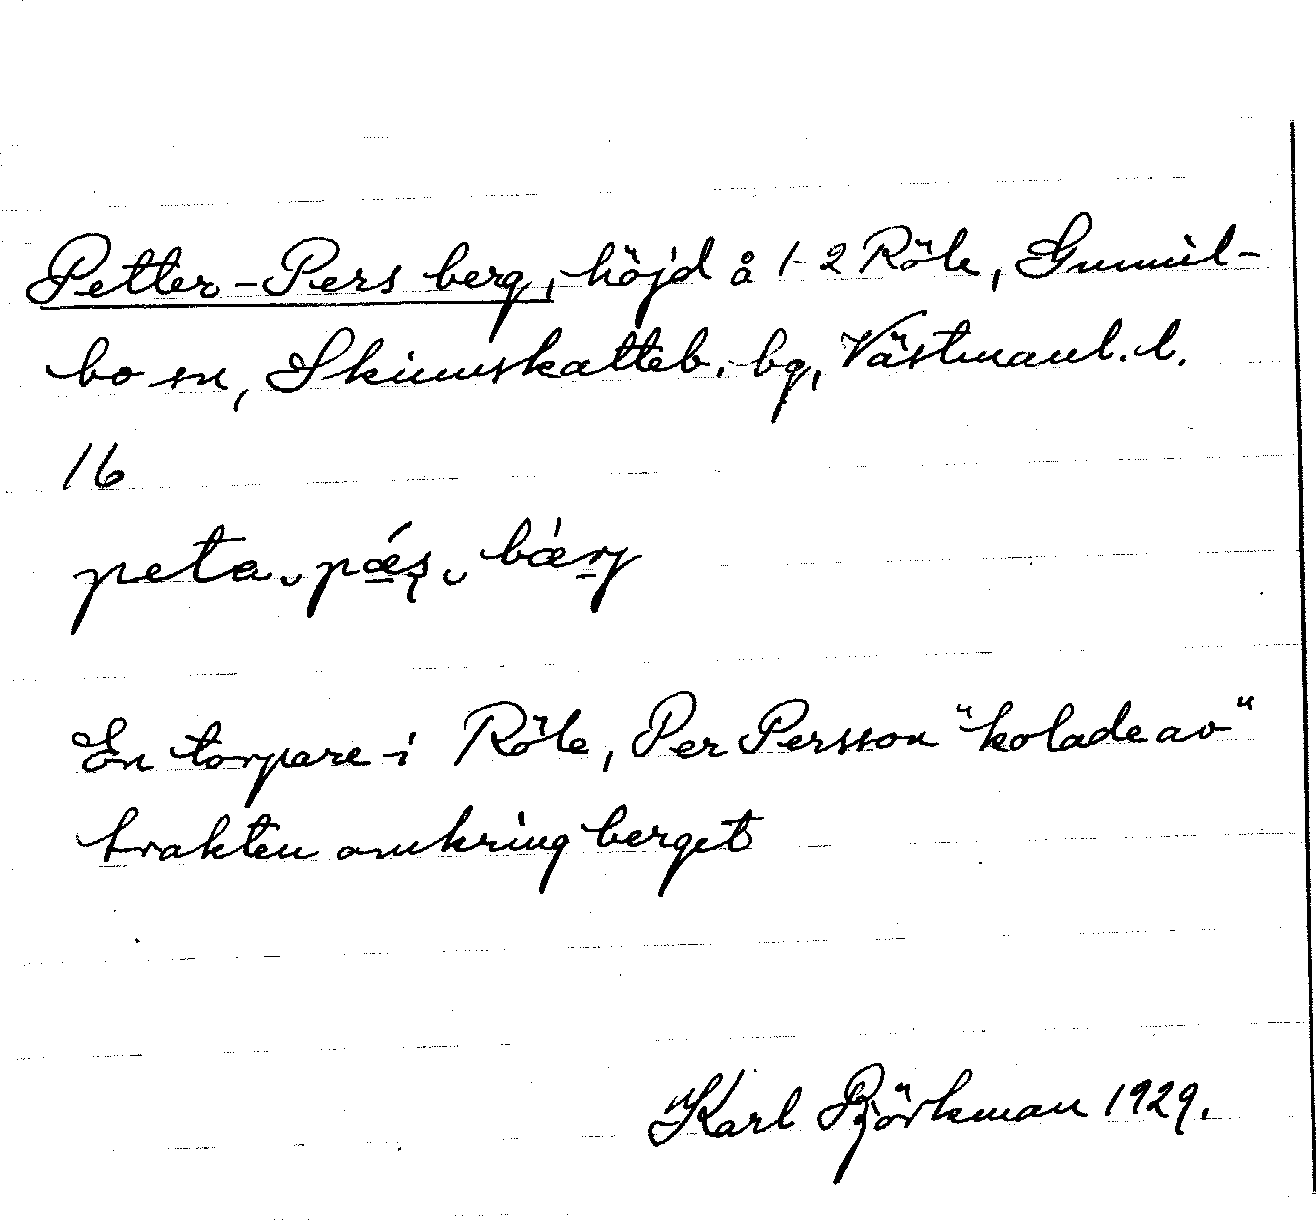 Petter-Pers berg, höjd å 1-2 Röle, Gunnil-
bo sn, Skinnskatteb. bg, Västmanl. l.
16
peta ̮ pǽʂ ̮ bǽrj
En torpare i Röle, Per Persson "kolade av"
trakten omkring berget
Karl Björkman 1929.